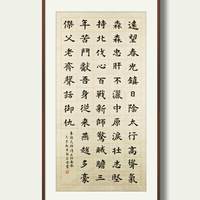 遠望春光鎮日陰太行高聳氣
森森忠肝不灑中原淚壯志堅
持北伐心百戰新師驚賊膽三
年苦鬥獻吾身從來燕趙多豪
傑父老齊聲話御仇